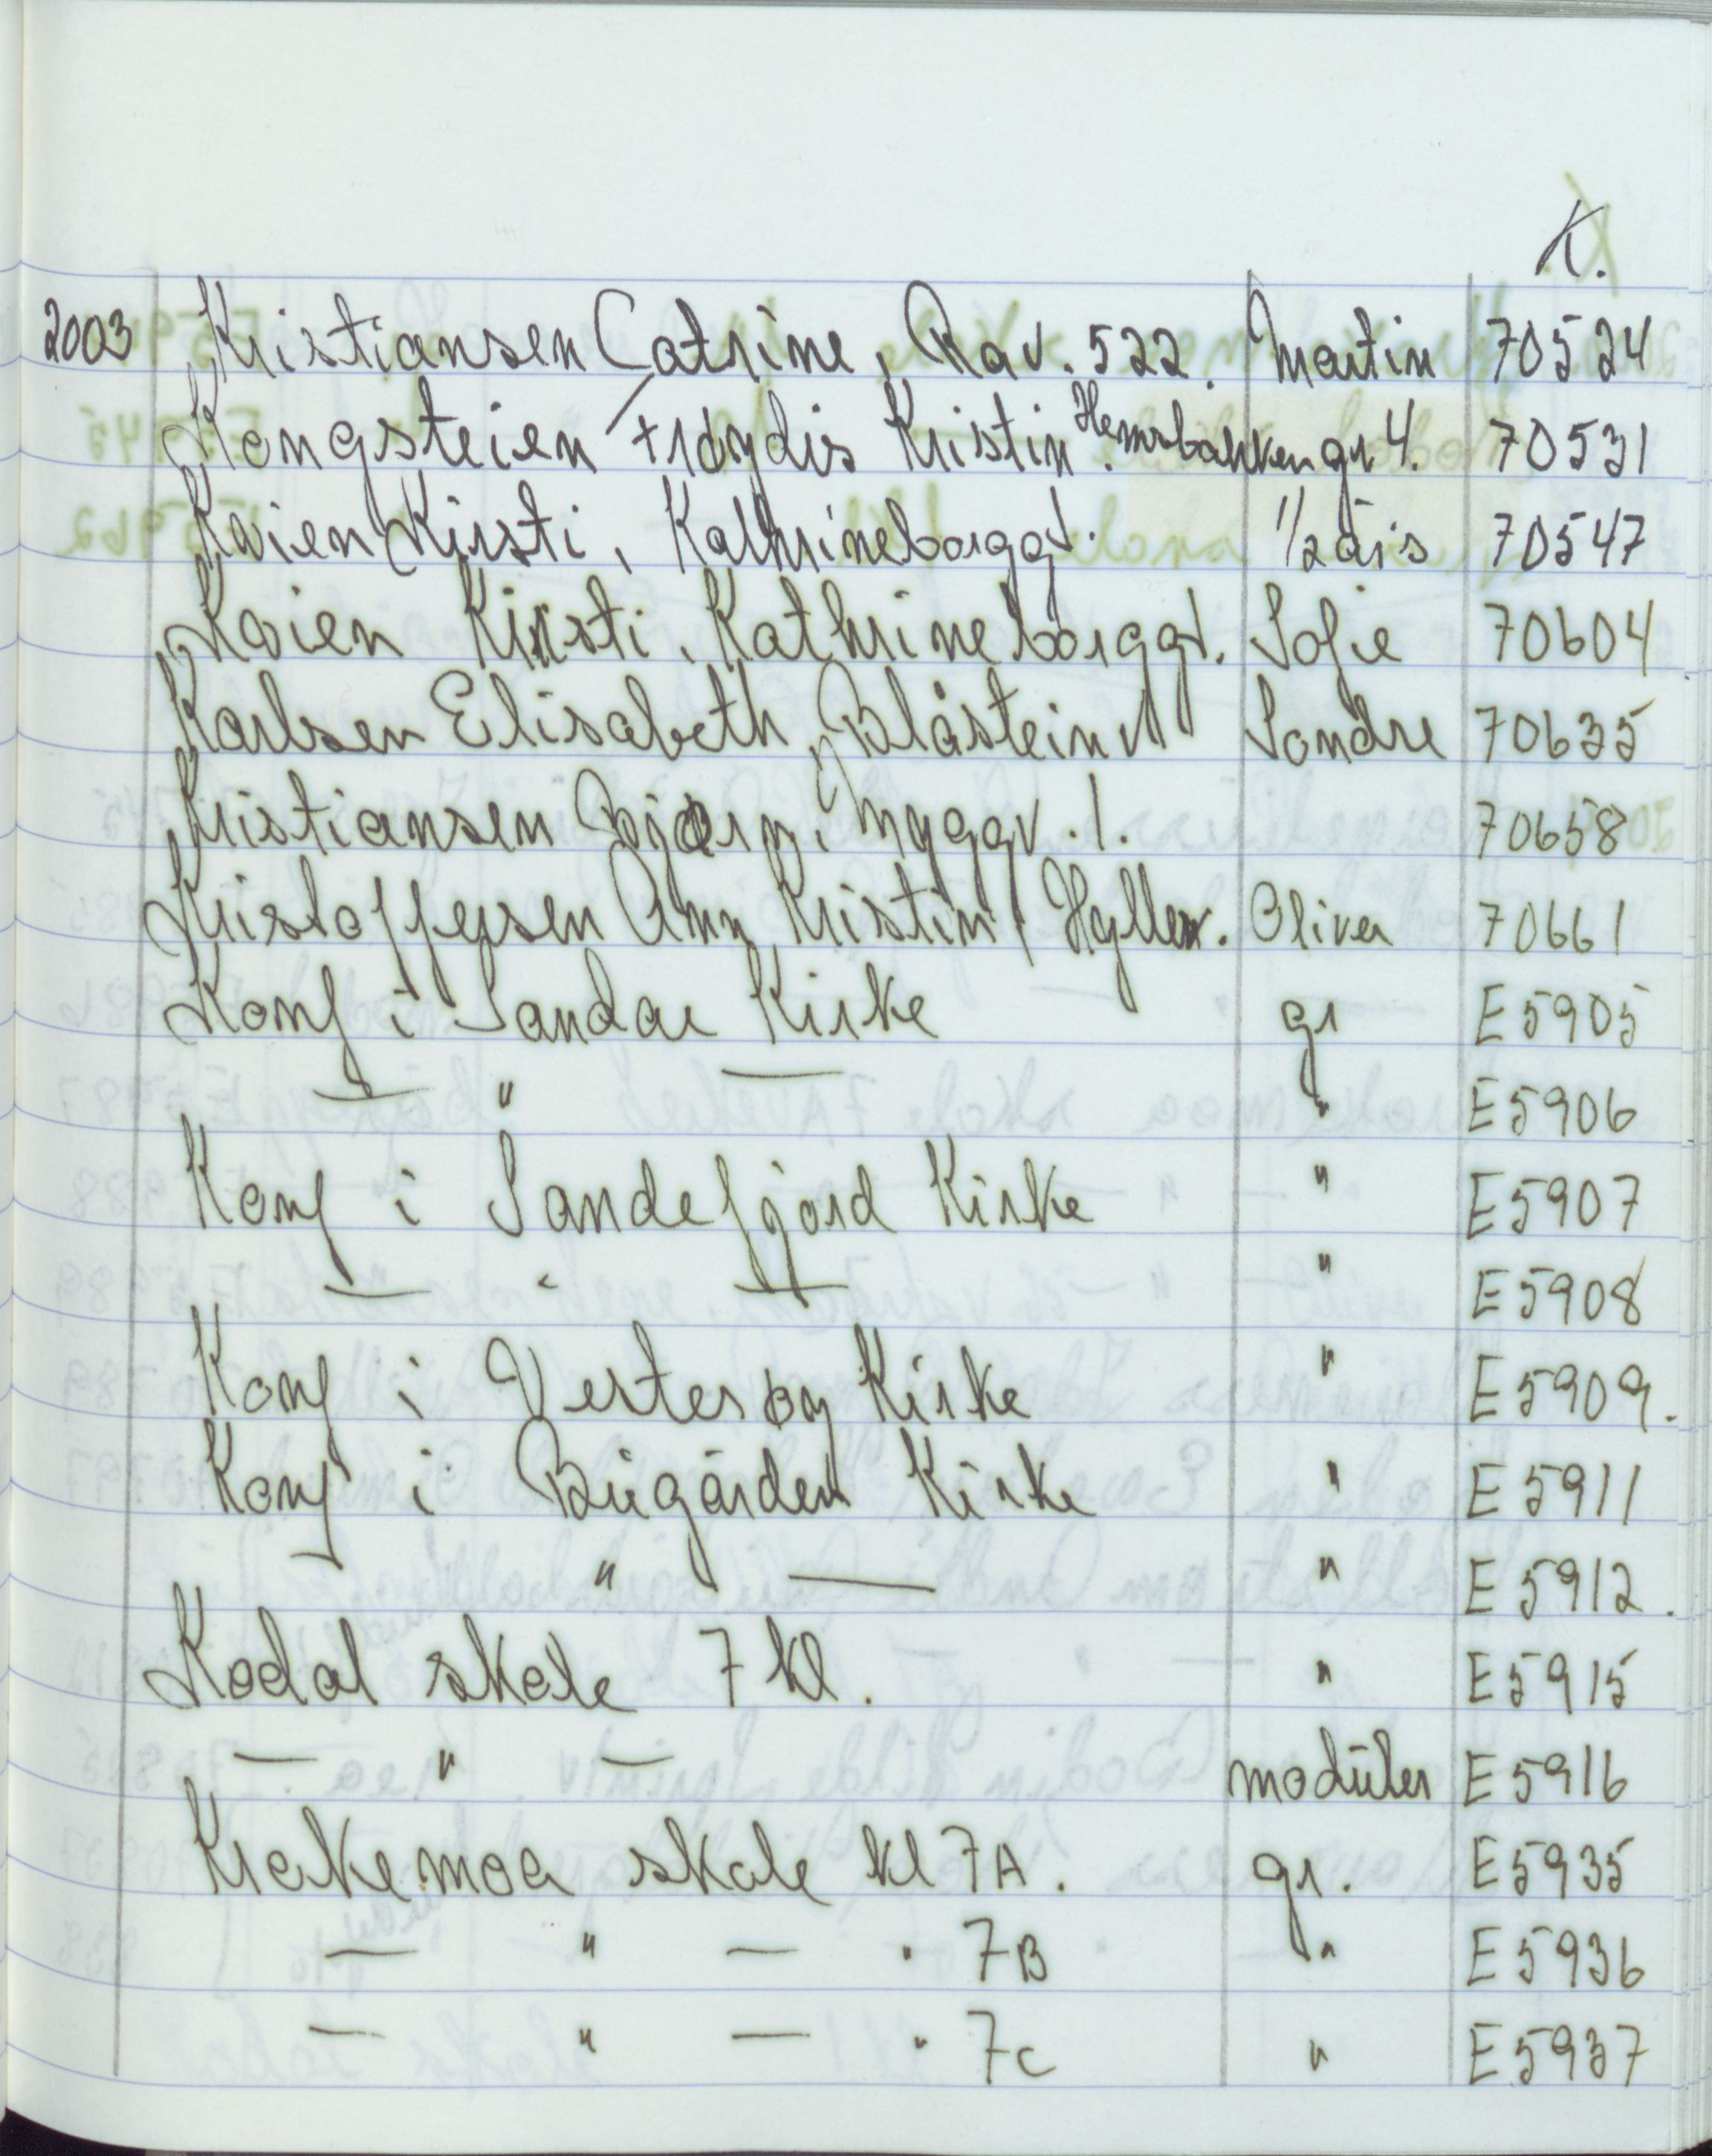 K.
2003 Kristiansen Catrine, Rav. 522. Martin 70524
Kongsteien Kristin. Hemsbakken gr 4. 70531
Kirsti, Kathrineborggt. 1/2 års 70547
Kirsti, Kathrineborggt. Sofie 70604
Karlsen Elisabeth, Blåsteinv Sondre 70635
Kristiansen Bjørn, Myggv. 1. 70658
Kristoffersen Ann Kristin, Hyllev. Oliver 70661
Konf i Sandar Kirke gr E5905
— " — " E5906
Konf i Sandefjord Kirke " E5907
— " — " E5908
Konf i Vesterøy Kirke " E5909.
Konf i Bugården Kirke " E5911
— " — " E5912.
Kodal skole 7 kl. " E5915
— " — moduler E5916
Krokemoa skole kl 7A. gr. E5935
— " — " 7B " E5936
— " — " 7C " E5937